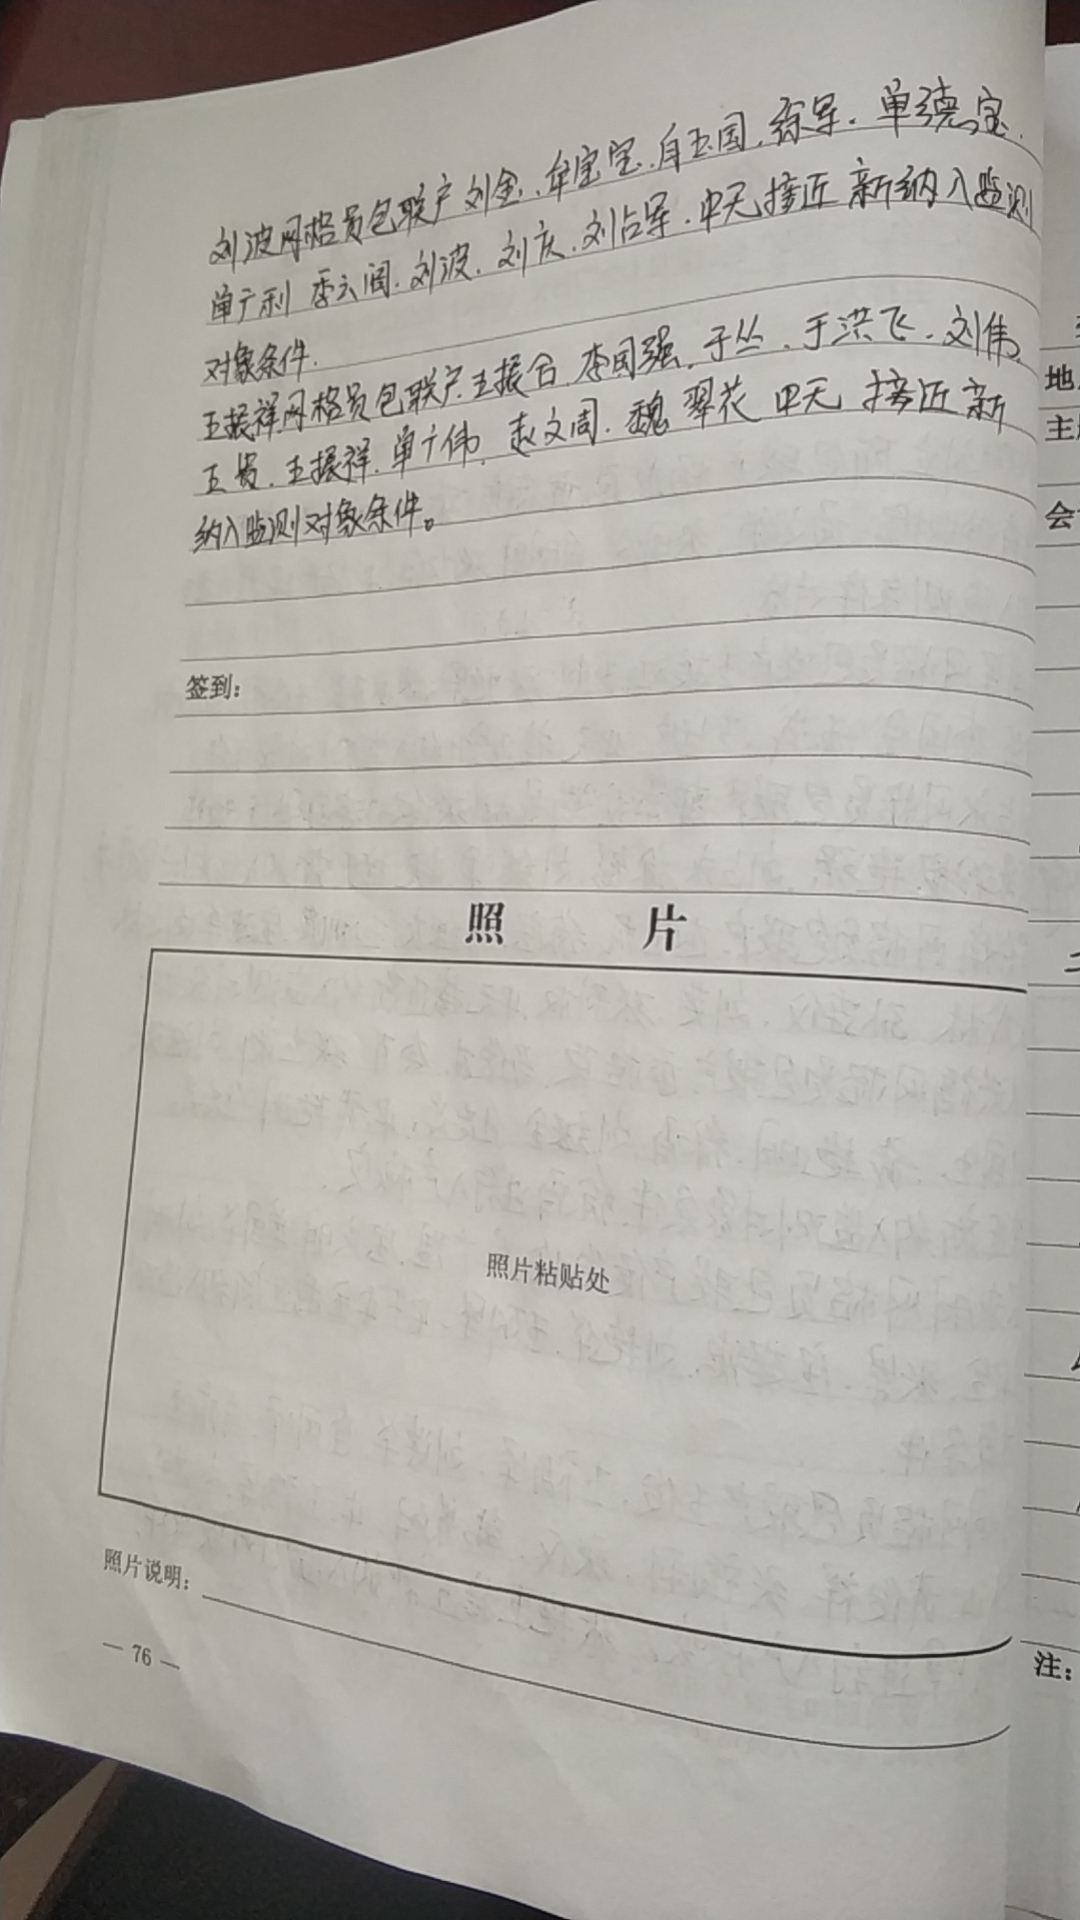 刘波网格员包联户刘金、牟宝宝、自玉国、徐军、单德宝、
单广利 季云润、刘波、刘庆、刘占军、中无接近新纳入监测
对象条件.
王振祥网格员包联户王振合、李国强、于丛、于洪飞、刘伟、
王贵、王振祥、单广伟、赵文周、魏翠花 中无 接近新
纳入监测对象条件。
签到：
照 片
照片粘贴处
照片说明：
— 76 —
地
主
会
注：